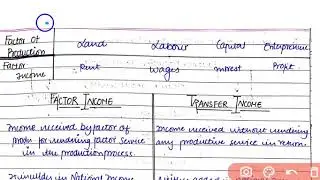 Factor of Production Land Labour Capital Entrepreneur
Factor Income Rent Wages Interest Profit
FACTOR INCOME TRANSFER INCOME
Income received by factor of Income received without rendering
prodn for rendering factor service any productive service in return.
in the production process.